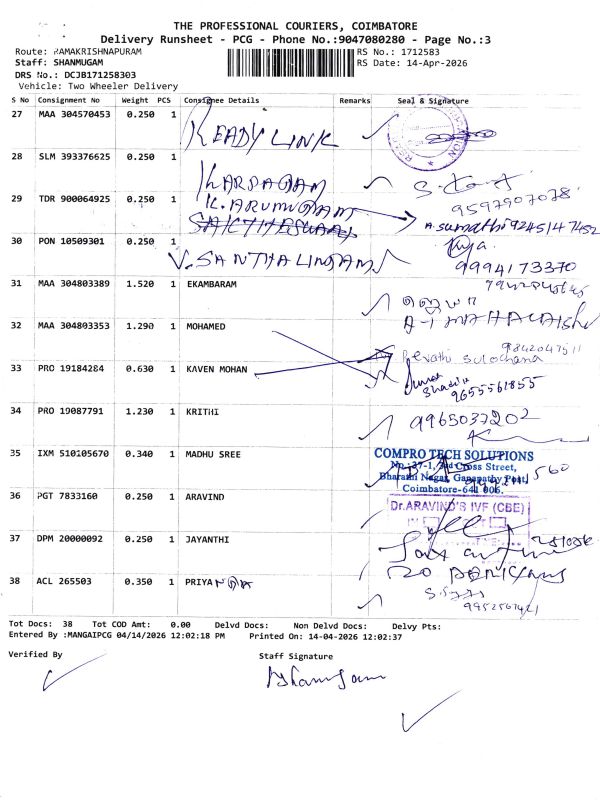 THE PROFESSIONAL COURIERS, COIMBATORE
Delivery Runsheet - PCG - Phone No.:9047080280 - Page No.:3
Route: RAMAKRISHNAPURAM RS No.: 1712583
Staff: SHANMUGAM RS Date: 14-Apr-2026
DRS No.: DCJB171258303
Vehicle: Two Wheeler Delivery
S No Consignment No Weight PCS Consignee Details Remarks Seal & Signature
27 MAA 304570453 0.250 1 READY LINK
28 SLM 393376625 0.250 1 KARPAGAM
9597907078
29 TDR 900064925 0.250 1 K. ARUMUGAM
A. Sumathi 9245147452
30 PON 10509301 0.250 1 V. SANTHALINGAM
9994173370
31 MAA 304803389 1.520 1 EKAMBARAM
32 MAA 304803353 1.290 1 MOHAMED
Revathi Sulochana
33 PRO 19184284 0.630 1 KAVEN MOHAN
9655561855
34 PRO 19087791 1.230 1 KRITHI 9965037202
35 IXM 510105670 0.340 1 MADHU SREE COMPRO TECH SOLUTIONS
No.:37-1, 3rd Cross Street,
Bharathi Nagar, Ganapathy Post,
Coimbatore-641 006.
36 PGT 7833160 0.250 1 ARAVIND Dr.ARAVIND'S IVF (CBE)
37 DPM 20000092 0.250 1 JAYANTHI
38 ACL 265503 0.350 1 PRIYA
Tot Docs: 38 Tot COD Amt: 0.00 Delvd Docs: Non Delvd Docs: Delvy Pts:
Entered By :MANGAIPCG 04/14/2026 12:02:18 PM Printed On: 14-04-2026 12:02:37
Verified By Staff Signature